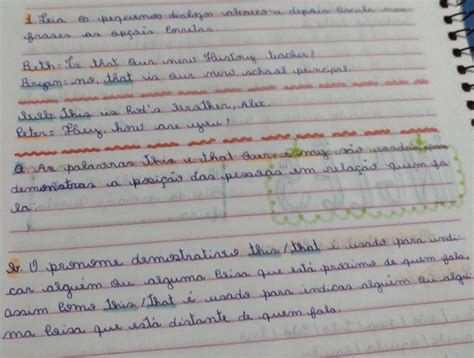 1. Leia os pequenos dialogos abaixo e depois circule nas
frases as opções corretas.
Beth: Is that our new History teacher?
Bryan: no, that is our new school principal.
this is Rob's brother, Alex.
Peter: Hey, how are you?
a. As palavras this e that são usadas para
demonstras a posição das pessoas em relação quem fa
la.
b. O pronome demostrativo this/that é usado para indi
car alguém ou alguma coisa que está proximo de quem fala,
assim como this/that é usado para indicas alguém ou algu
ma coisa que está distante de quem fala.